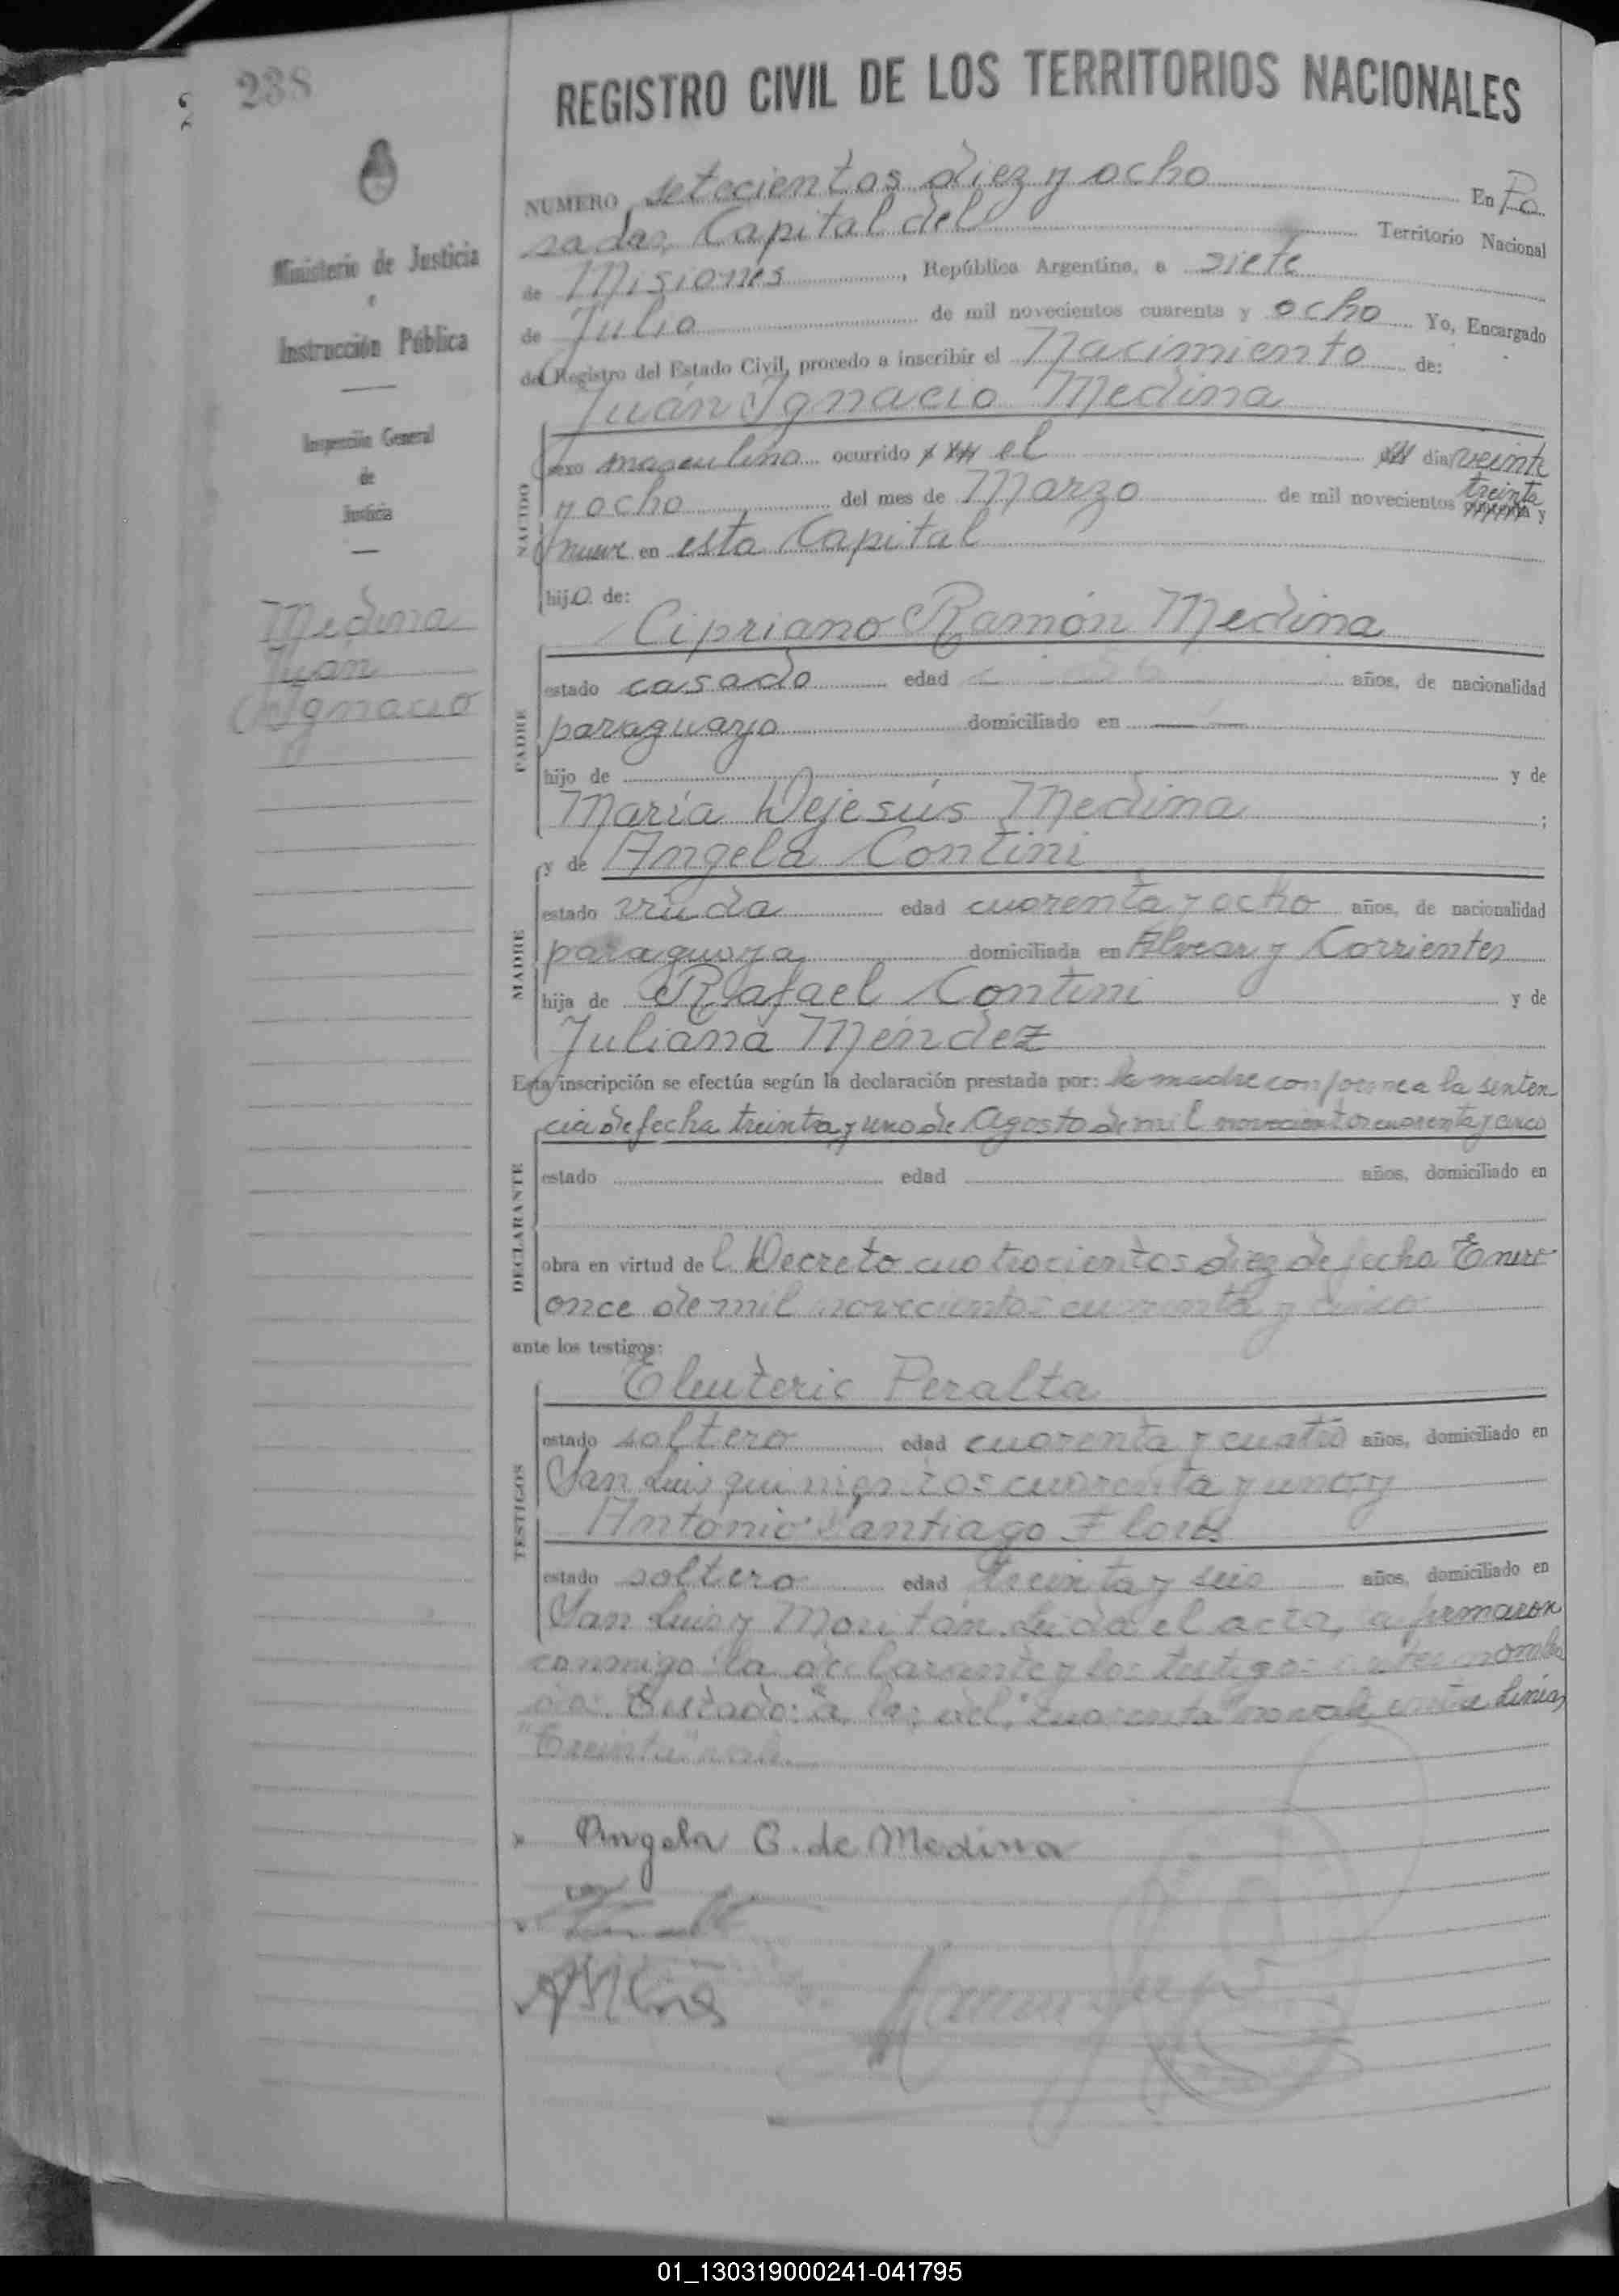 238
REGISTRO CIVIL DE LOS TERRITORIOS NACIONALES
Ministerio de Justicia
e
Instrucción Pública
Inspección General
de
Justicia
Medina
Juan
Ignacio
NUMERO setecientos diez y ocho En Po
sadas, Capital del Territorio Nacional
de Misiones, República Argentina, a siete
de Julio de mil novecientos cuarenta y ocho Yo, Encargado
del Registro del Estado Civil, procedo a inscribir el Nacimiento de:
Juán Ignacio Medina
NACIDO
sexo masculino ocurrido el día veinte
treinta
y ocho del mes de Marzo de mil novecientos cuarenta y
nueve en esta Capital
hijo de:
Cipriano Ramón Medina
PADRE
estado casado edad años, de nacionalidad
paraguayo domiciliado en —
hijo de y de
María Dejesús Medina ;
y de Angela Contini
MADRE
estado viuda edad cuarenta y ocho años, de nacionalidad
paraguaya domiciliada en Alvear y Corrientes
hija de Rafael Contini y de
Juliana Méndez
Esta inscripción se efectúa según la declaración prestada por: la madre conforme a la senten
cia de fecha treinta y uno de Agosto de mil novecientos cuarenta y cinco
DECLARANTE
estado edad años, domiciliado en
obra en virtud de l Decreto cuatrocientos diez de fecha Enero
once de mil novecientos cuarenta y cinco
ante los testigos:
Eleuterio Peralta
TESTIGOS
estado soltero edad cuarenta y cuatro años, domiciliado en
San Luis quinientos cuarenta y uno y
Antonio Santiago Flores
estado soltero edad treinta y seis años, domiciliado en
San Luis y Leida el acta, la firmaron
conmigo la declarante y los testigos antes nombra
dos. Testado: "a las; del; cuarenta" no vale, entre linias
"treinta" vale.
Angela C. de Medina
01_130319000241-041795